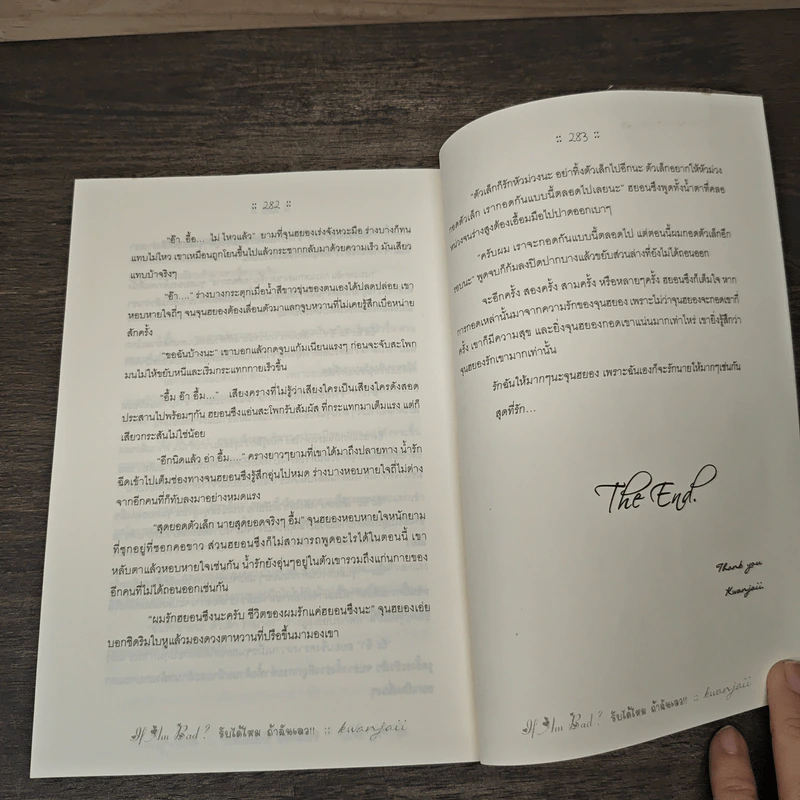 :: 282 ::
"อ๊า..อื้อ... ไม่ ไหวแล้ว" ยามที่จุนฮยองเร่งจังหวะมือ ร่างบางก็ทน
แทบไม่ไหว เขาเหมือนถูกโยนขึ้นไปแล้วกระชากกลับมาด้วยความเร็ว มันเสียว
แทบบ้าจริงๆ
"อ๊า...." ร่างบางกระตุกเมื่อน้ำสีขาวขุ่นของตนเองได้ปลดปล่อย เขา
หอบหายใจถี่ๆ จนจุนฮยองต้องเลื่อนตัวมาแลกจูบหวานที่ไม่เคยรู้สึกเบื่อหน่าย
สักครั้ง
"ขอฉันบ้างนะ" เขาบอกแล้วกดจูบแก้มเนียนแรงๆ ก่อนจะจับสะโพก
มนไม่ให้ขยับหนีและเริ่มกระแทกกายเร็วขึ้น
"อื้ม อ๊า อื้ม..." เสียงครางที่ไม่รู้ว่าเสียงใครเป็นเสียงใครดังสอด
ประสานไปพร้อมๆกัน ฮยอนซึงแอ่นสะโพกรับสัมผัส ที่กระแทกมาเต็มแรง แต่ก็
เสียวกระสันไม่ใช่น้อย
"อีกนิดแล้ว อ่า อื้ม...." ครางยาวๆยามที่เขาได้มาถึงปลายทาง น้ำรัก
ฉีดเข้าไปเต็มช่องทางจนฮยอนซึงรู้สึกอุ่นไปหมด ร่างบางหอบหายใจถี่ไม่ต่าง
จากอีกคนที่ก็ทับลงมาอย่างหมดแรง
"สุดยอดตัวเล็ก นายสุดยอดจริงๆ อื้ม" จุนฮยองหอบหายใจหนักยาม
ที่ซุกอยู่ที่ซอกคอขาว ส่วนฮยอนซึงก็ไม่สามารถพูดอะไรได้ในตอนนี้ เขา
หลับตาแล้วหอบหายใจเช่นกัน น้ำรักยังอุ่นๆอยู่ในตัวเขารวมถึงแก่นกายของ
อีกคนที่ไม่ได้ถอนออกเช่นกัน
"ผมรักฮยอนซึงนะครับ ชีวิตของผมรักแค่ฮยอนซึงนะ" จุนฮยองเอ่ย
บอกชิดริมใบหูแล้วมองดวงตาหวานที่ปรือขึ้นมามองเขา
If I'm Bad? รับได้ไหม ถ้าฉันเลว!! :: kwanjaii
:: 283 ::
"ตัวเล็กก็รักหัวม่วงนะ อย่าทิ้งตัวเล็กไปอีกนะ ตัวเล็กอยากให้หัวม่วง
กอดตัวเล็ก เรากอดกันแบบนี้ตลอดไปเลยนะ" ฮยอนซึงพูดทั้งน้ำตาที่คลอ
หน่วงจนร่างสูงต้องเอื้อมมือไปปาดออกเบาๆ
"ครับผม เราจะกอดกันแบบนี้ตลอดไป แต่ตอนนี้ผมกอดตัวเล็กอีก
รอบนะ" พูดจบก็ก้มลงปิดปากบางแล้วขยับส่วนล่างที่ยังไม่ได้ถอนออก
จะอีกครั้ง สองครั้ง สามครั้ง หรือหลายๆครั้ง ฮยอนซึงก็เต็มใจ หาก
การกอดเหล่านั้นมาจากความรักของจุนฮยอง เพราะไม่ว่าจุนฮยองจะกอดเขากี่
ครั้ง เขาก็มีความสุข และยิ่งจุนฮยองกอดเขาแน่นมากเท่าไหร่ เขายิ่งรู้สึกว่า
จุนฮยองรักเขามากเท่านั้น
รักฉันให้มากๆนะจุนฮยอง เพราะฉันเองก็จะรักนายให้มากๆเช่นกัน
สุดที่รัก...
The End.
Thank you
Kwanjaii
If I'm Bad? รับได้ไหม ถ้าฉันเลว!! :: kwanjaii